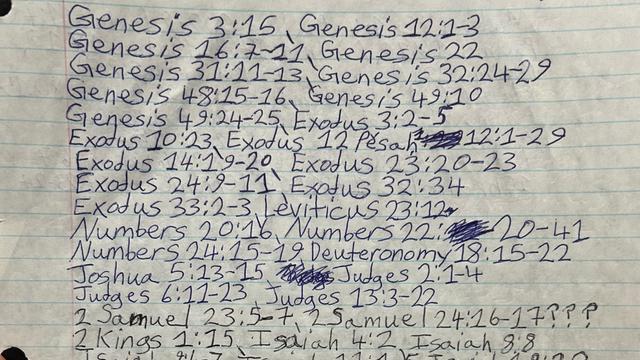 Genesis 3:15, Genesis 12:1-3
Genesis 16:7-11, Genesis 22
Genesis 31:11-13, Genesis 32:24-29
Genesis 48:15-16, Genesis 49:10
Genesis 49:24-25, Exodus 3:2-5
Exodus 10:23, Exodus 12 Pesah 12:1-29
Exodus 14:19-20, Exodus 23:20-23
Exodus 24:9-11, Exodus 32:34
Exodus 33:2-3, Leviticus 23:12
Numbers 20:16, Numbers 22: 20-41
Numbers 24:15-19, Deuteronomy 18:15-22
Joshua 5:13-15 Judges 2:1-4
Judges 6:11-23, Judges 13:3-22
2 Samuel 23:5-7, 2 Samuel 24:16-17???
2 Kings 1:15, Isaiah 4:2, Isaiah 8:8